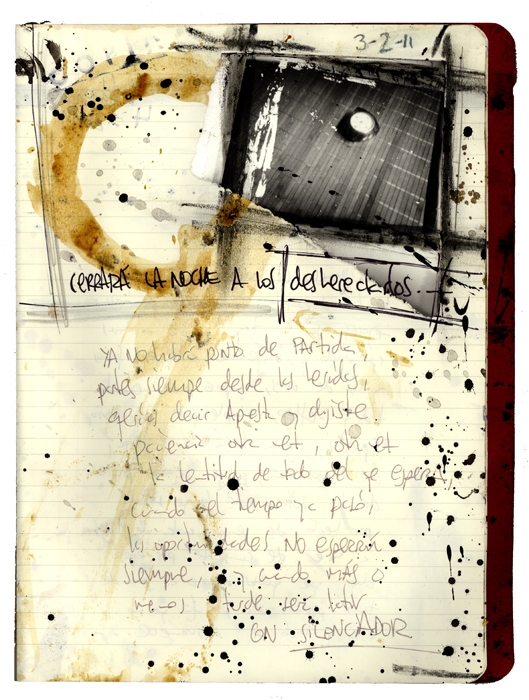 3-2-11
CERRARÁ LA NOCHE A LOS desheredados...
YA NO habrá punto de PARtida,
partes siempre desde las heridas,
decir Aposta y dijiste
otra vez, otra vez
la lentitud de todo del que espera,
cuando el tiempo ya pasó,
las oportunidades NO esperan
siempre, y cuando más o
menos tarde será
CON SILENCIADOR